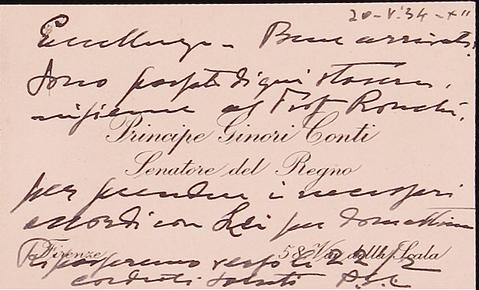 20-V-34-XII
Eccellenza - Bene arrivato!
Sono passato di qui stasera,
insieme al Prof Ronchi,
Principe Ginori Conti
Senatore del Regno
per prendere i necessari
accordi con Lei per domattina
Firenze 58, Via della Scala
Ripasseremo verso le 22
cordiali saluti P.G.C